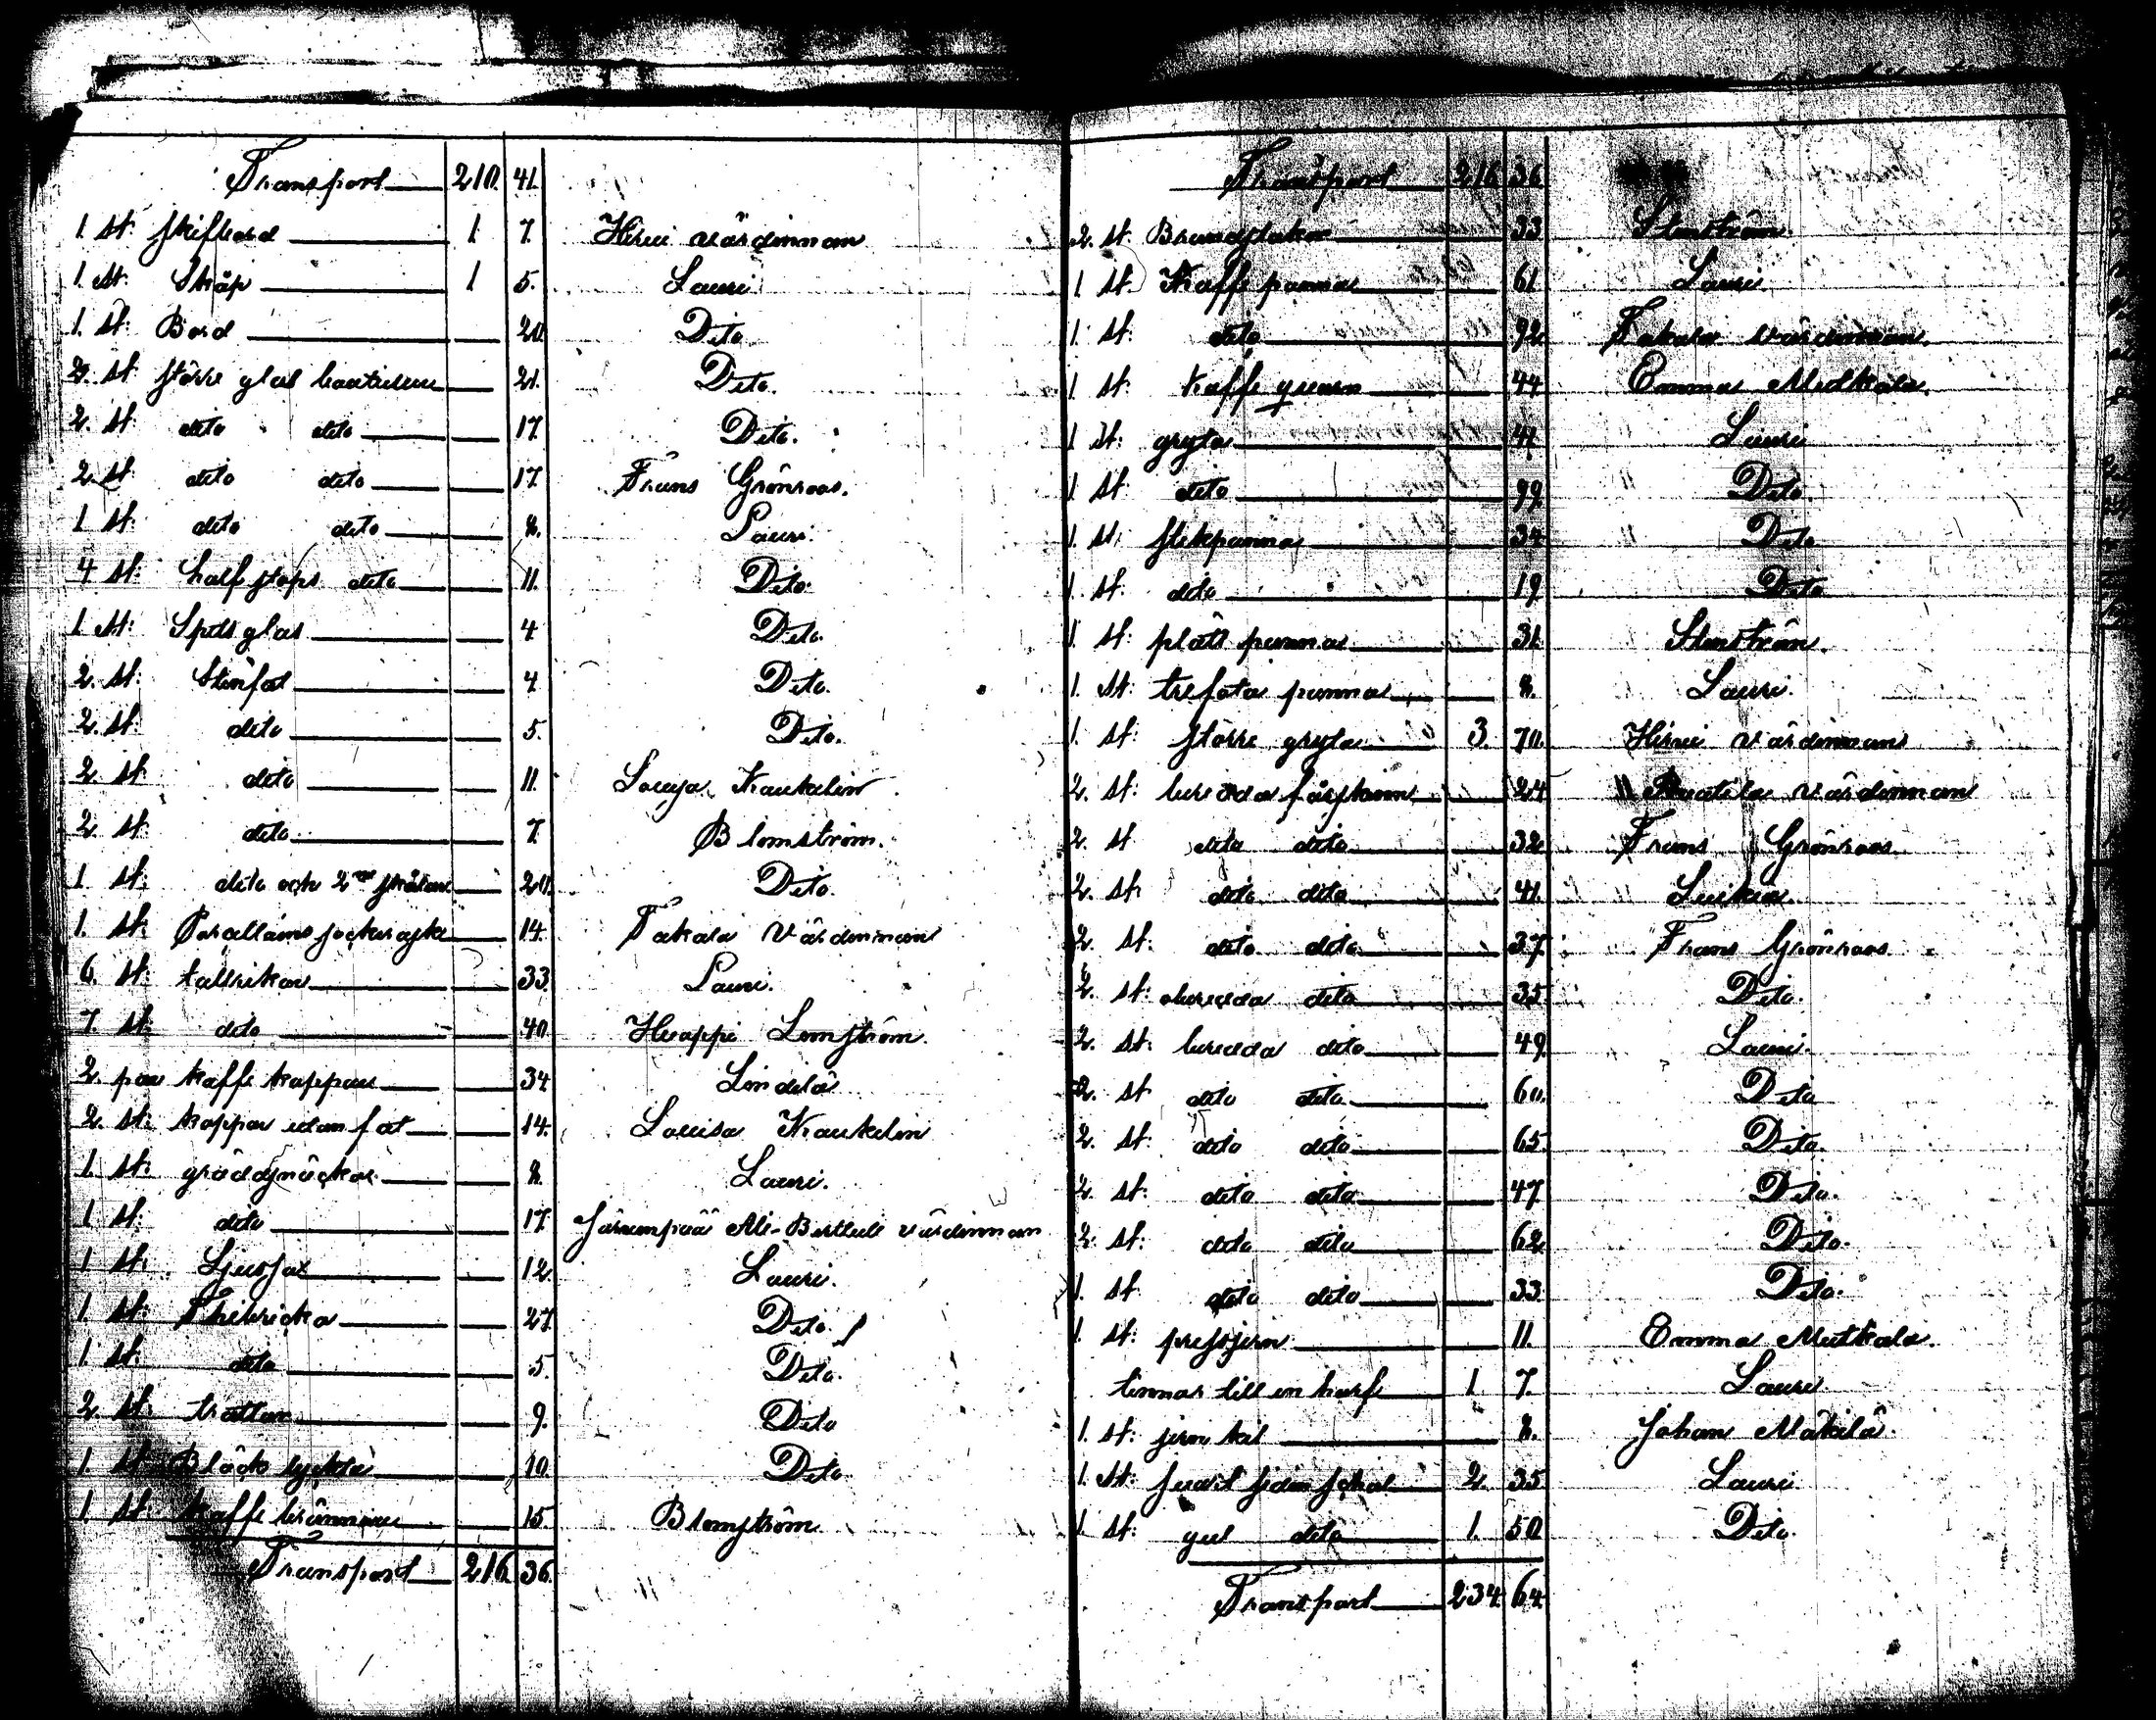 Transport 210. 41.
1. st: skifbord 1 7. Hirvi värdinnan
1. st: Skåp 1 5. Lauri
1. st: Bord 20. Dito
2. st större glas 21. Dito.
2. st dito dito 17. Dito.
2. st dito dito 17. Frans Grönroos.
1 st: dito dito 8. Lauri.
4 st: half stops dito 11. Dito.
1 st: Spets glas 4 Dito.
2. st: Stenfat 4 Dito.
2. st: dito 5. Dito.
2 st: dito 11. Kaukelin
2 st: dito 7. Blomström.
1 st: dito och 2ne skålar 20. Dito.
1. st: Porslains sockerask 14. Takala Värdinnan
6. st: tallrikar 33. Lauri.
7. st: dito 40. Huappi Lomström.
2. par kaffe koppar 34. Lindelä
2. st: koppar utan fat 14. Lauisa Kaukelin
1 st: gräddsnäcka 8. Lauri.
1 st: dito 17. Järvenpää Ali-Berttuli värdinnan
1 st: Ljussax 12. Lauri.
1. st: Thebricka 27. Dito.
1 st: dito 5. Dito.
2 st: trattar 9. Dito
1. st: Bläck lyckta 10. Dito
1. st: kaffe brännare 15. Blomström
Transport 216. 36.
Transport 216 36
2. st. 33 Stenström
1 st. Kaffe panna 61. Lauri
1 st: dito 92. Takala värdinnan.
1 st: kaffe quarn 44. Emma Mutkala.
1 st: gryta 41. Lauri
1 st dito 99. Dito
1. st: stekpanna 34. Dito
1. st. dito 19. Dito
1. st: plått panna 31. Stenström.
1. st: trefota panna 8. Lauri.
1. st: större gryta 3. 70. Hirvi värdinnan
2. st: beredda fårskinn 24. värdinnan
2. st dito dito 32. Frans Grönroos.
2. st: dito dito 41.
2. st: dito dito 37. Frans Grönroos
2. st: oberedda dito 35. Dito.
2. st: beredda dito 49. Lauri.
2. st dito dito 60. Dito
2. st: dito dito 65. Dito.
2. st: dito dito 47. Dito.
2. st: dito dito 62. Dito.
1. st dito dito 33. Dito.
1. st: pressjern 11. Emma Mutkala.
tinnar till en harf 1 7. Lauri
1. st: jern kil 8. Johan Mäkilä.
1. st: svart siden schal 2. 35. Lauri
1 st: gul dito 1. 50. Dito.
Transport 234. 64.